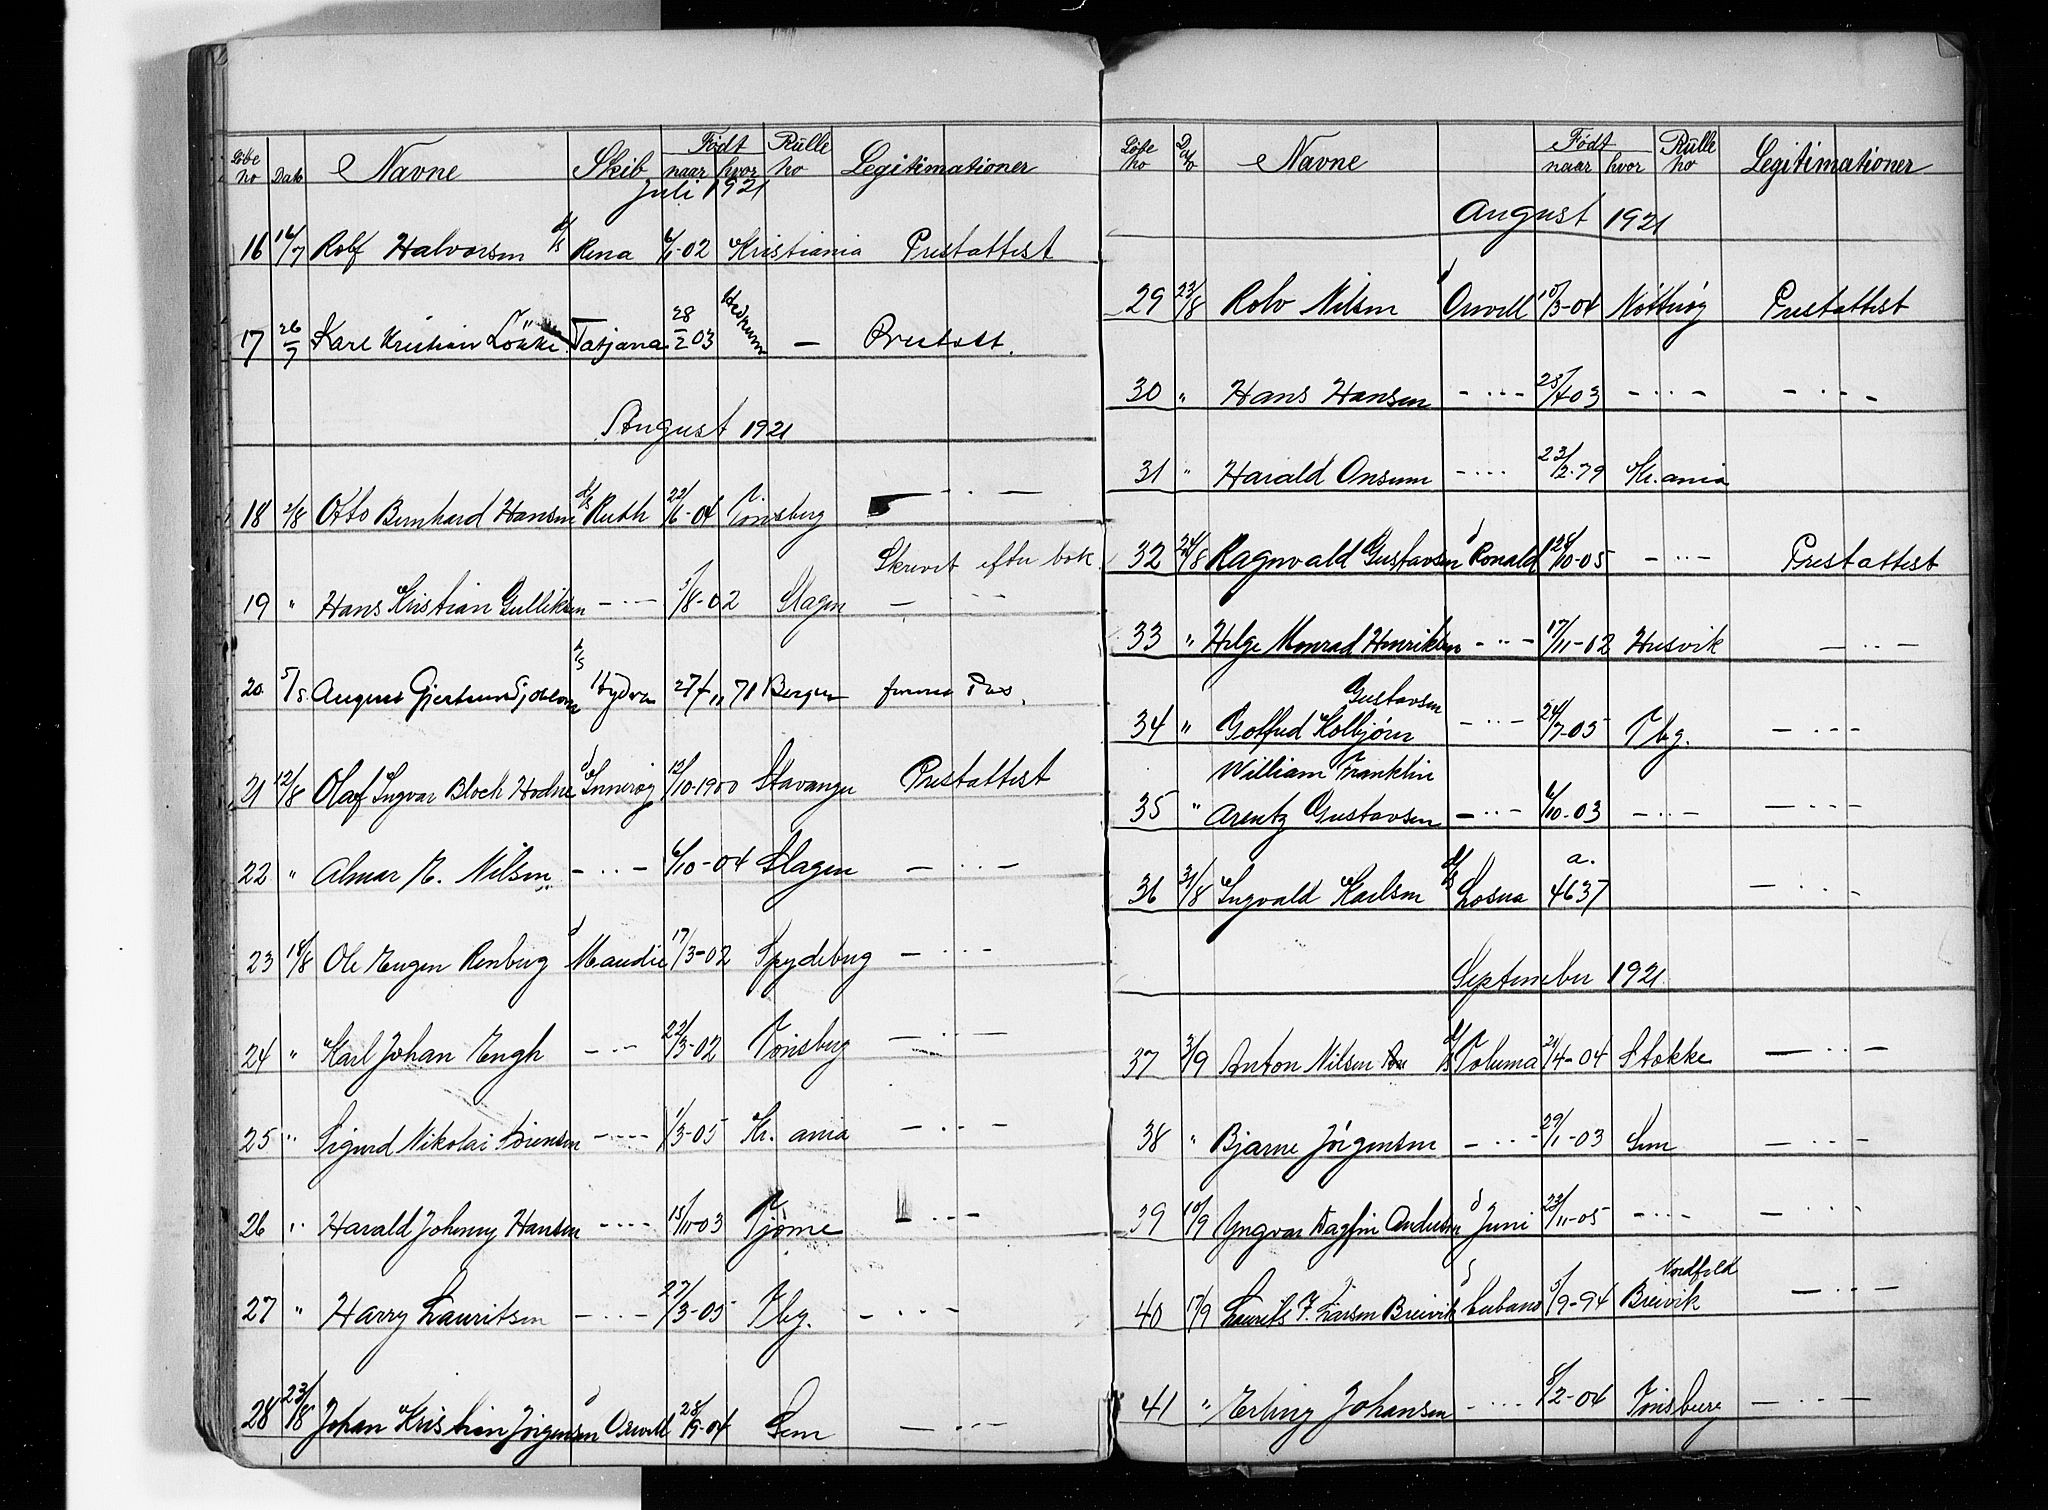 Løbe no Dato Navne Skib Født naar hvor Rulle no Legitimationer
Juli 1921
16 16/7 Rolf Halvorsen d/s Rena 6/1-02 Kristiania Prestattest
17 26/7 Karl Kristian Løkke Tatjana 28/2 03 — Prestatt.
August 1921
18 2/8 Otto Bernhard Hansen d/s Ruth 22/6-04 Tønsberg — " —
Skrevet efter bok
19 " Hans Kristian Gulliksen — " — 5/8-02 Slagen — " —
20 5/8 August Gjertsen Hydra 27/11 71 Bergen Pas.
21 12/8 Olaf Ingvar Bloch Hodne Inneröy 12/10-1900 Stavanger Prestattest
22 " Almar E. Nilsen — " — 6/10-04 Slagen — " —
23 18/8 Ole Eugen Renberg Maudie 17/3-02 Spydeberg — " —
24 " Karl Johan Engh — " — 22/3-02 Tønsberg — " —
25 " Sigurd Nikolai Sørensen — " — 1/3-05 Kr.ania — " —
26 " Harald Johnny Hansen — " — 15/11-03 Tjøme — " —
27 " Harry Lauritsen — " — 27/3-05 Tbg. — " —
28 23/8 Johan Kristian Jørgensen Orwell 28/9-04 Sem — " —
Løbe no Dato Navne Født naar hvor Rulle no Legitimationer
August 1921
29 23/8 Rolv Nilsen Orwell 10/3-04 Nøtterøy Prestattest
30 " Hans Hansen — " — 25/4 03 — " — — " —
31 " Harald Onsum — " — 23/2-79 Kr.ania
32 24/8 Ragnvald Gustavsen Ronald 28/10-05 — " — Prestattest
33 " Helge Monrad Henriksen — " — 17/11-02 Husvik — " —
Gustavsen
34 " Gotfred Kolbjørn — " — 24/7-05 Tbg. — " —
William Franklin
35 " Arentz Gustavsen — " — 6/10-03 — " — — " —
a.
36 31/8 Ingvald Karlsen d/s Losna 4637 — " —
September 1921
37 3/9 Anton Nilsen d/s Toluma 21/4-04 Stokke — " —
38 " Bjarne Jørgensen — " — 29/1-03 Sem — " —
39 10/9 Yngvar Dagfin Andersen Juni 23/11-05 — " — — " —
Nordfold
40 17/9 Laurits F. Larsen Breivik Cubano 5/9-94 Breivik — " —
41 " Erling Johansen — " — 8/2-04 Tønsberg — " —